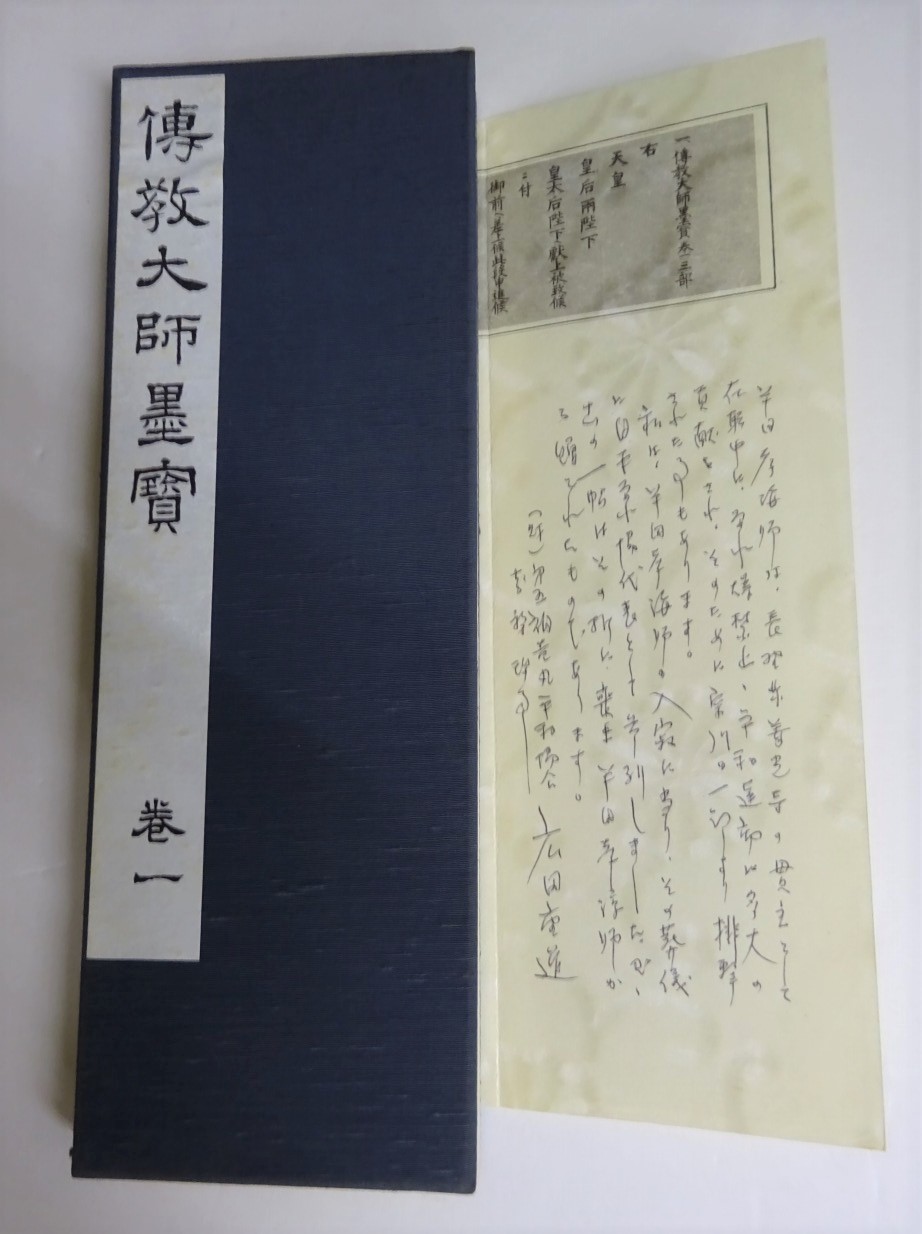 傳教大師墨寶
卷一
一傳教大師墨寳卷一 三部
右
天皇
皇后兩陛下
皇太后陛下獻上被致候
ニ付
半田孝海師は、長野市善光寺の貫主として
在職中に、原水爆禁止、平和運動に多大の
貢献をされ、そのために宗門の一部より排撃
されたこともあります。
私は、半田孝海師の入寂に当り、その葬儀
に日本原水協代表として参列しましたが、
此の一帖はその折に、喪主半田孝淳師か
ら贈られたものであります。
(財)第五福竜丸平和協会
広田重道